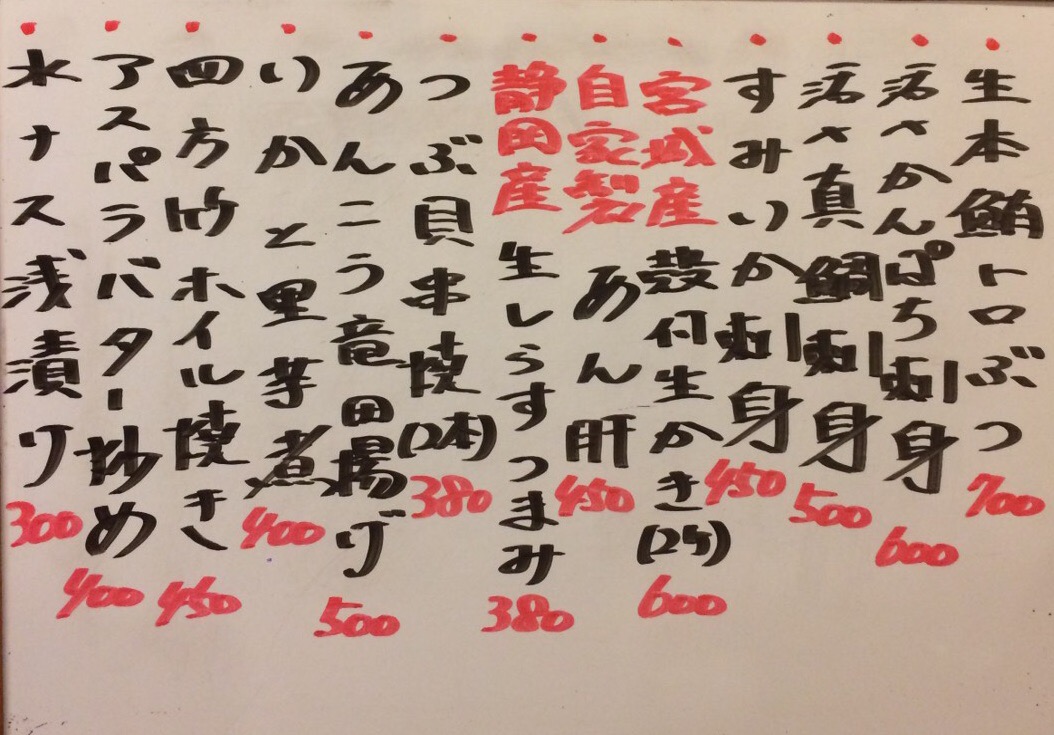 生本鮪トロぶつ 700
活〆かんぱち刺身 600
活〆真鯛刺身 500
すみいか刺身 450
宮城産 殻付生かき(2ケ) 600
自家製 あん肝 450
静岡産 生しらすつまみ 380
つぶ貝串焼(2本) 380
あんこう竜田揚げ 500
いかと里芋煮 400
四方竹ホイル焼き 450
アスパラバター炒め 400
水ナス浅漬り 300